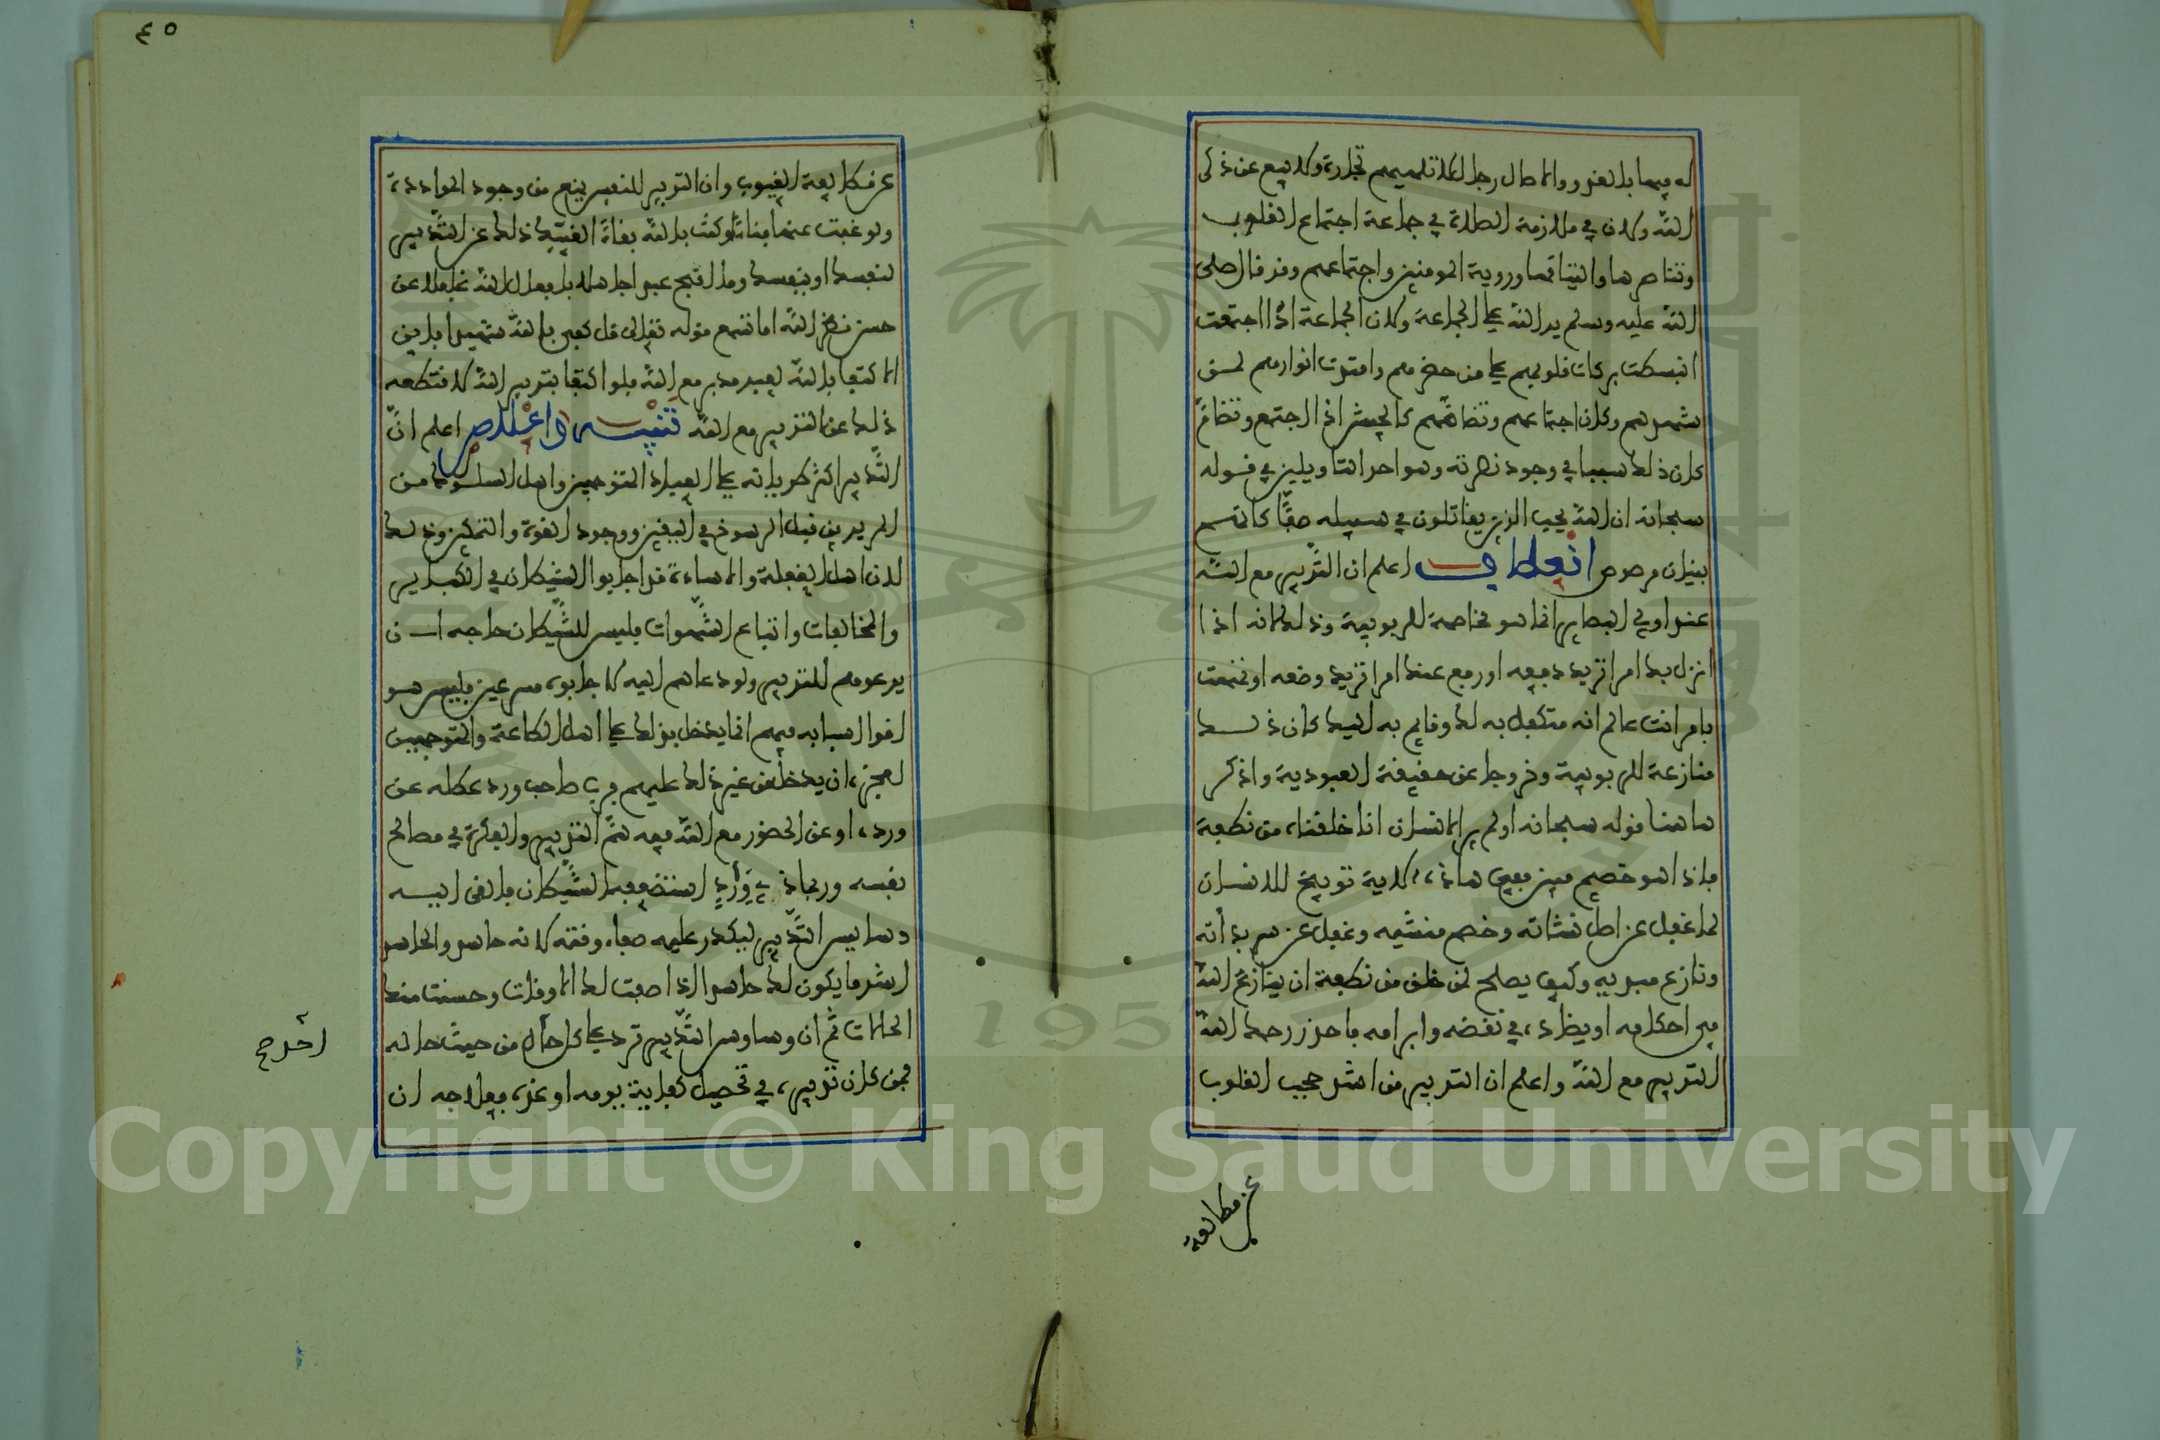 له فيها بالغدو والاصال رجال لا تلهيهم تجارة ولا بيع عن ذكر
الله ولان في ملازمة الصلاة في جماعة اجتماع القلوب
وتناصرها والتيامها وروية المومنين واجتماعهم وقد قال صلى
الله عليه وسلم يد الله على الجماعة ولان الجماعة اذا اجتمعت
انبسطت بركات قلوبهم على من حضرهم وامتدت انوارهم لمن
شهدهم وكان اجتماعهم وتضامّهم كالجيش اذا اجتمع وتضامّ
كان ذلك سببا في وجود نصرته وهو احد التاويلين في قوله
سبحانه ان الله يحب الذين يقاتلون في سبيله صفّا كانهم
بنيان مرصوص انعطاف اعلم ان التّدبير مع الله
عند اولي البصاير انما هو مخاصمة للربوبية وذلك لانه اذا
انزل بك امرا تريد دفعه او رفع عنك امرا تريد وضعه او تهممت
بامر انت عالم انه متكفل به لك وقايم به اليك كان ذلك
منازعة للربوبية وخروجا عن حقيقة العبودية واذكر
هاهنا قوله سبحانه اولم ير الانسان انا خلقناه من نطفة
فاذا هو خصيم مبين ففي هاذه الاية توبيخ للانسان
لما غفل عن اصل نشاته وخصم منشيه وغفل عن سر بدأته
ونازع مبديه وكيف يصلح لمن خلق من نطفة ان ينازع اللّه
في احكامه او يضاده في نقضه وابرامه فاحذر رحمك اللّه
التدبير مع اللّه واعلم ان التدبير من اشد حجب القلوب
عن مطالعة
٤٥
عن مطالعة الغيوب وان التدبير للنفس ينبع من وجود الموادة
ولو غبت عنها فناء وكنت بالله بقاء لغيبك ذلك عن التّدبير
لنفسك او بنفسك وما اقبح عبدا جاهلا بافعال الله غافلا عن
حسن نظر الله اما تسمع قوله تعالى قل كفى بالله شهيدا فاين
الاكتفا بالله لعبد مدبر مع اللّه فلو اكتفا بتدبير الله لاقتطعه
ذلك عن التدبير مع الله تنبيه واعلام اعلم انّ
التّدبير اكثر طريانه على العباد المتوجهين واهل السلوك من
المريدين قبل الرسوخ في اليقين ووجود القوة والتمكين وذلك
لان اهل الغفلة والاساءة قد اجابوا الشيطان في الكباير
والمخالفات واتباع الشّهوات فليس للشّيطان حاجه ان
يدعوهم للتدبير ولو دعاهم اليه لاجابوه مسرعين فليس هو
اقوا اسبابه فيهم انما يدخل بذلك على اهل الطاعة والمتوجهين
لعجزه ان يدخل من غير ذلك عليهم فرب صاحب ورد عطله عن
ورده او عن الحضور مع اللّه فيه همّ التدبير والفكرة في مصالح
نفسه وربما ذي وِرْدٍ استضعفه الشّيطان فالقى اليه
دسايس التّدبير ليكدر عليه صفاء وقته لانه حاسد والحاسد
اشد ما يكون لك حاسدا اذا صفت لك الاوقات وحسنت منك
الحالات ثم ان وساوس التّدبير ترد على كل احد من حيث حاله
فمن كان تدبيره في تحصيل كفاية يومه او غده فعلاجه ان
احد صح
Copyright © King Saud University
1957